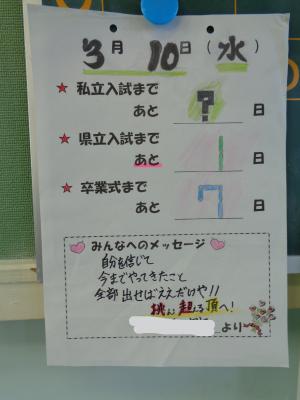 3月 10日（水）
★ 私立入試まで
あと ? 日
★ 県立入試まで
あと 1 日
★ 卒業式まで
あと 7 日
みんなへのメッセージ
自分を信じて
今までやってきたこと
全部出せばええだけや!!
挑め 超えろ 頂へ!
より